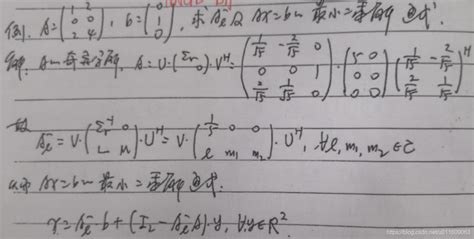 例. A=(1 2 0 0 2 4), b=(0 1 0), 求 A_l^- 及 Ax=b 的最小二乘解通式.
解. A的奇异分解, A=U·(Σ_r 0)·V^H=(1/√5 -2/√5 0 0 0 1 2/√5 1/√5 0)·(5 0 0 0 0 0)(1/√5 -2/√5 2/√5 1/√5)^H
故 A_l^-=V·(Σ_r^{-1} 0 L M)·U^H=V·(1/5 0 0 l m_1 m_2)·U^H, ∀l, m_1, m_2∈C
从而 Ax=b的最小二乘解通式.
x=A_l^- b+(I_2-A_l^- A)·y, ∀y∈R^2.